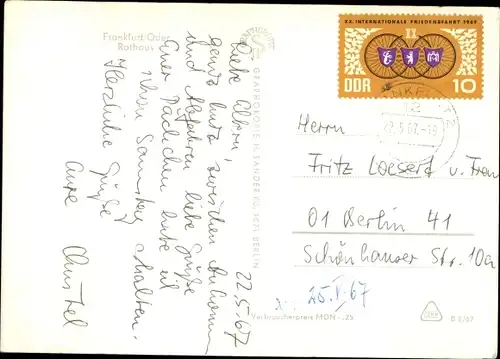 Frankfurt/Oder
Rathaus
22.5.67
Liebe Eltern,
ganz kurz zwischen Ankommen
und Abfahren liebe Grüße
Euer Päckchen habe ich
schon Samstag erhalten.
Herzliche Grüße
Eure
GRAPHOKOPIE H. SANDER KG, 1071 BERLIN
XX. INTERNATIONALE FRIEDENSFAHRT 1967
XX
DDR 10
22.5.67
Herrn
Fritz Loeserd u. Frau
01 Berlin 41
Schönhauser Str. 10a
25.V.67
Verbraucherpreis MDN -,25
D 2/67